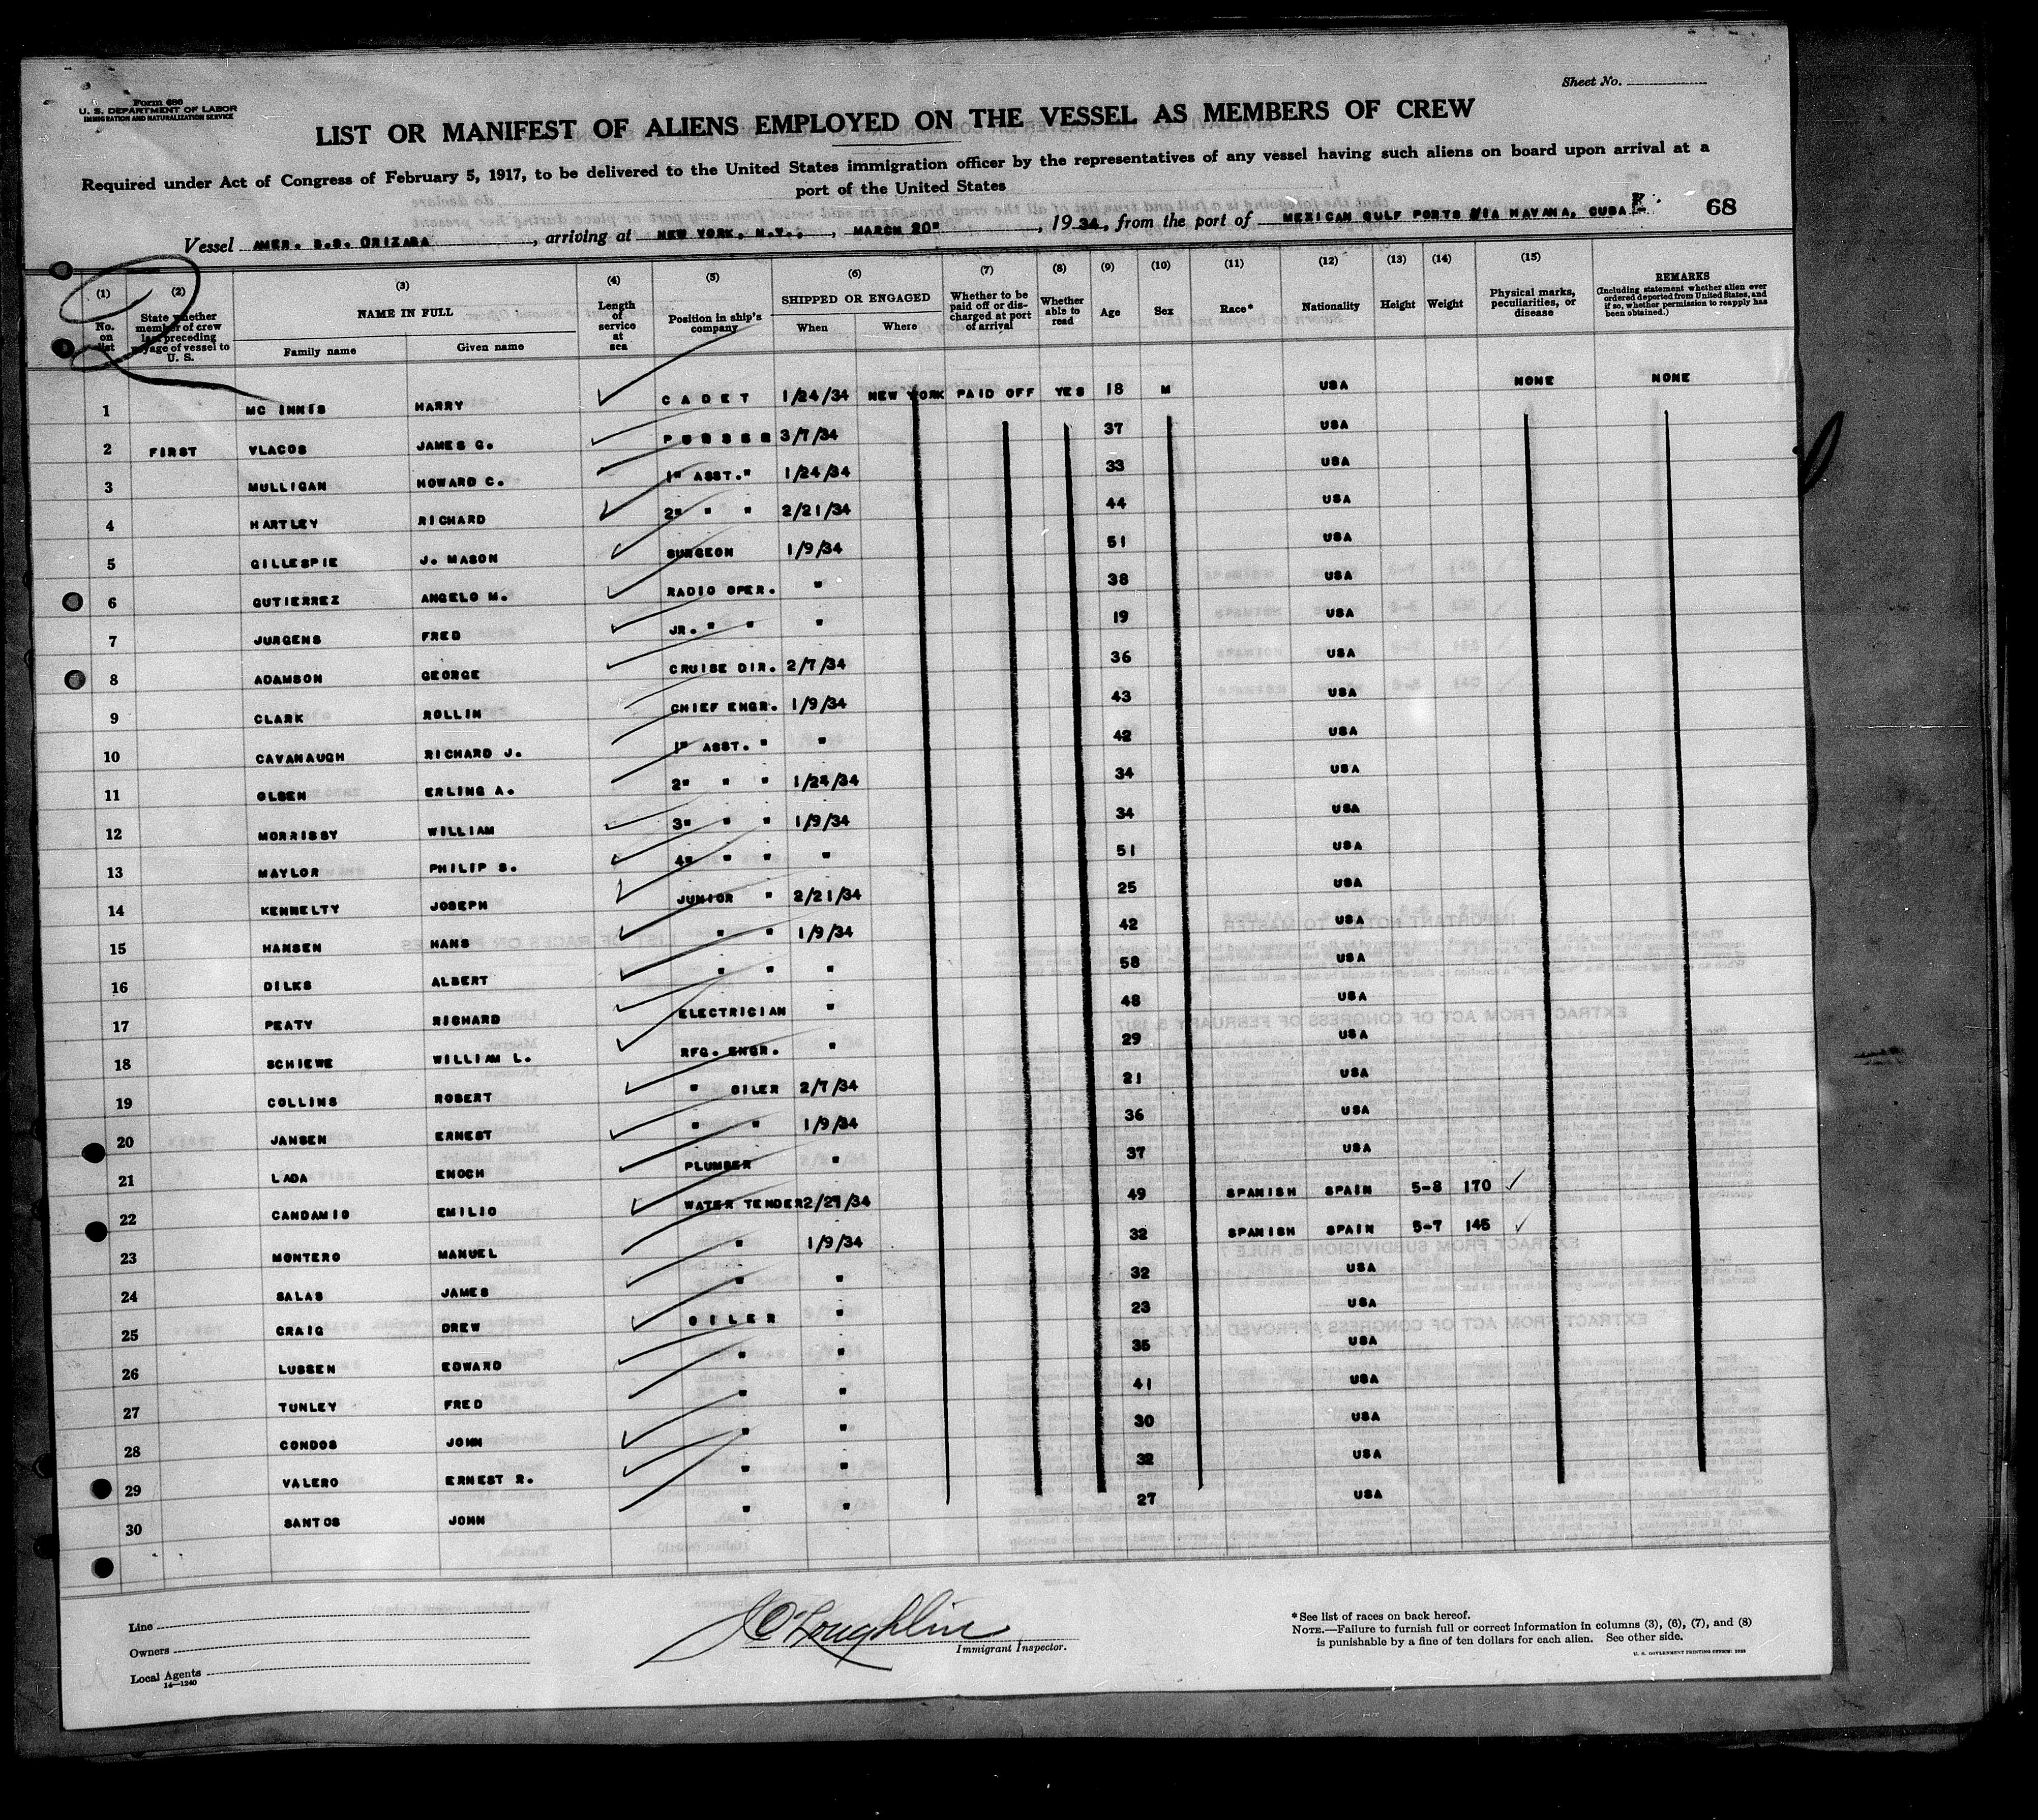 Form 680
U. S. DEPARTMENT OF LABOR
IMMIGRATION AND NATURALIZATION SERVICE
Sheet No.
LIST OR MANIFEST OF ALIENS EMPLOYED ON THE VESSEL AS MEMBERS OF CREW
Required under Act of Congress of February 5, 1917, to be delivered to the United States immigration officer by the representatives of any vessel having such aliens on board upon arrival at a
port of the United States
Vessel AMER. S.S. ORIZABA, arriving at NEW YORK, N.Y., MARCH 20", 1934, from the port of MEXICAN GULF PORTS VIA HAVANA, CUBA 68
(1) (2) (3) (4) (5) (6) (7) (8) (9) (10) (11) (12) (13) (14) (15)
No. on list State whether member of crew last preceding voyage of vessel to U. S. NAME IN FULL Family name Given name Length of service at sea Position in ship's company SHIPPED OR ENGAGED When Where Whether to be paid off or discharged at port of arrival Whether able to read Age Sex Race* Nationality Height Weight Physical marks, peculiarities, or disease REMARKS (Including statement whether alien ever ordered deported from United States, and if so, whether permission to reapply has been obtained.)
1 MC INNIS HARRY CADET 1/24/34 NEW YORK PAID OFF YES 18 M USA NONE NONE
2 FIRST VLACOS JAMES G. PURSER 3/7/34 37 USA
3 MULLIGAN HOWARD C. 1" ASST. " 1/24/34 33 USA
4 HARTLEY RICHARD 2" " " 2/21/34 44 USA
5 GILLESPIE J. MASON SURGEON 1/9/34 51 USA
6 GUTIERREZ ANGELO M. RADIO OPER. " 38 USA
7 JURGENS FRED JR. " " " 19 USA
8 ADAMSON GEORGE CRUISE DIR. 2/7/34 36 USA
9 CLARK ROLLIN CHIEF ENGR. 1/9/34 43 USA
10 CAVANAUGH RICHARD J. 1" ASST. " " 42 USA
11 OLSEN ERLING A. 2" " " 1/24/34 34 USA
12 MORRISSY WILLIAM 3" " " 1/9/34 34 USA
13 MAYLOR PHILIP S. 4" " " " 51 USA
14 KENNELTY JOSEPH JUNIOR " 2/21/34 25 USA
15 HANSEN HANS " " 1/9/34 42 USA
16 DILKS ALBERT " " " 58 USA
17 PEATY RICHARD ELECTRICIAN " 48 USA
18 SCHIEWE WILLIAM L. RFG. ENGR. " 29 USA
19 COLLINS ROBERT " OILER 2/7/34 21 USA
20 JANSEN ERNEST " " 1/9/34 36 USA
21 LADA ENOCH PLUMBER " 37 USA
22 CANDAMIO EMILIO WATER TENDER 2/21/34 49 SPANISH SPAIN 5-8 170
23 MONTERO MANUEL " 1/9/34 32 SPANISH SPAIN 5-7 145
24 SALAS JAMES " " 32 USA
25 CRAIG DREW OILER " 23 USA
26 LUSSEN EDWARD " " 35 USA
27 TUNLEY FRED " " 41 USA
28 CONDOS JOHN " " 30 USA
29 VALERO ERNEST R. " " 32 USA
30 SANTOS JOHN " " 27 USA
Line
Owners
Local Agents
14—1240
J O'Loughlin
Immigrant Inspector.
* See list of races on back hereof.
NOTE.—Failure to furnish full or correct information in columns (3), (6), (7), and (8)
is punishable by a fine of ten dollars for each alien. See other side.
U. S. GOVERNMENT PRINTING OFFICE: 1933